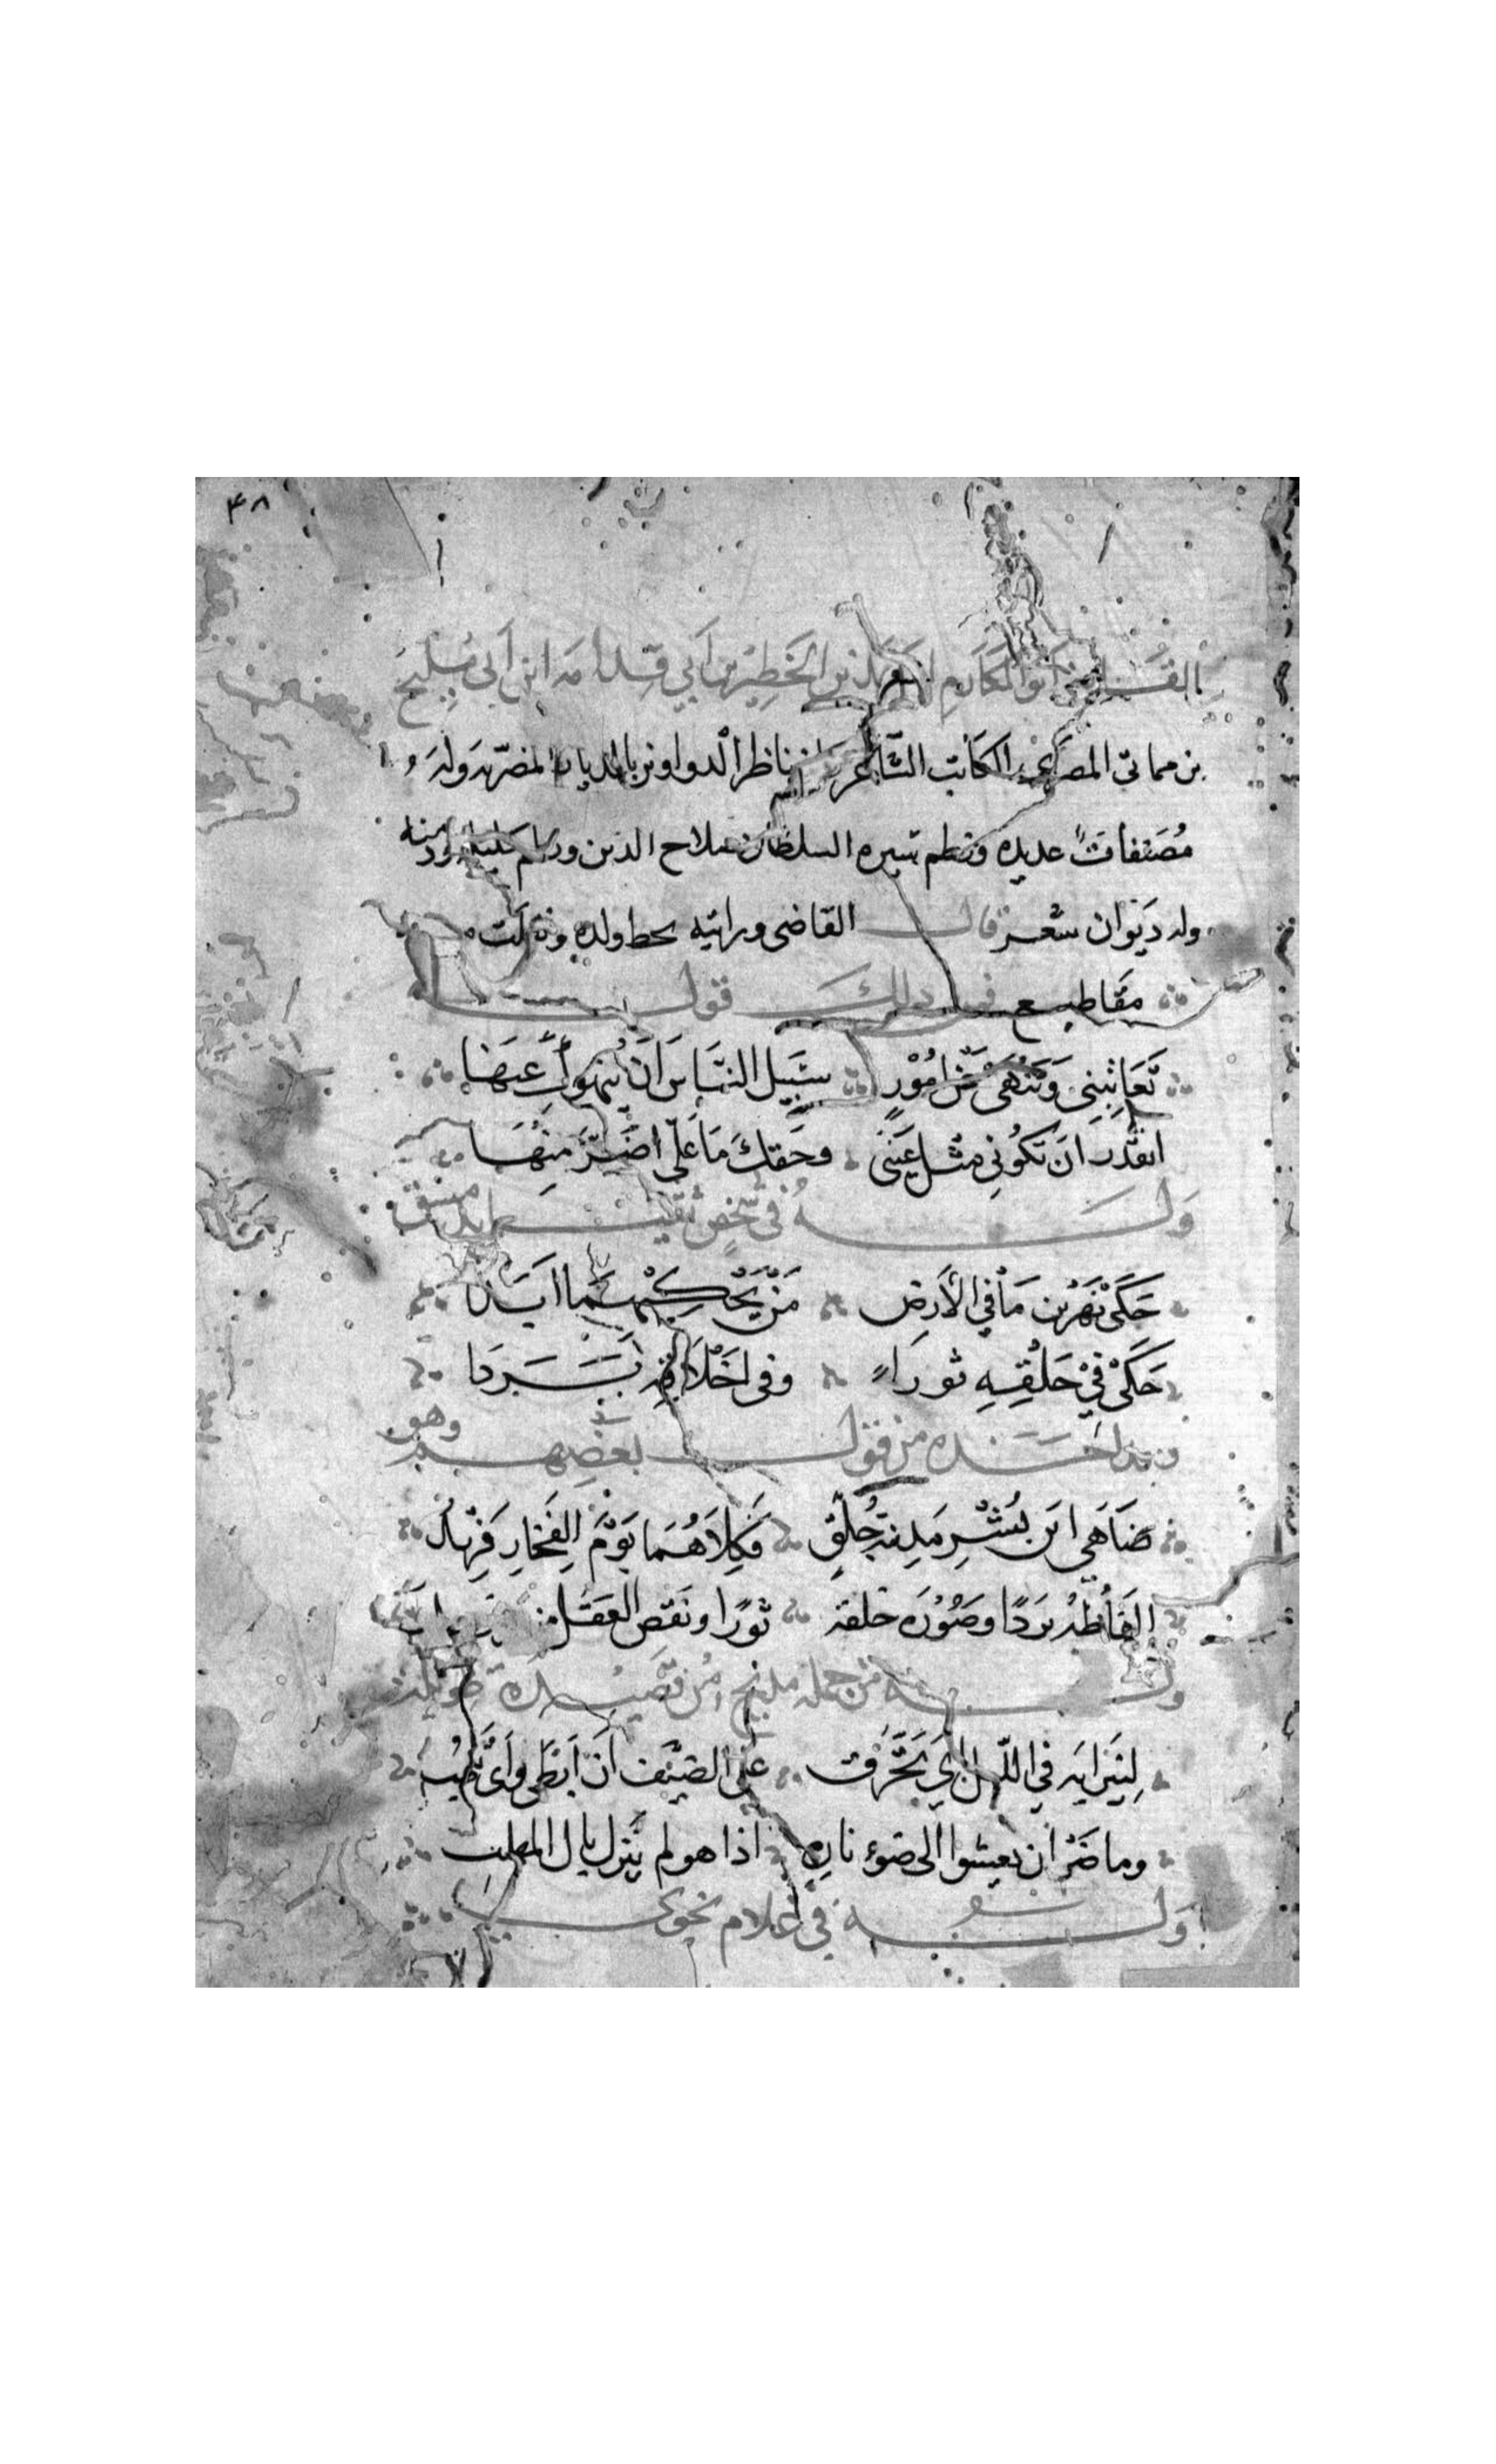 ٤٨
القاضي ابو المكارم اسعد بن الخطير بن ابي قدامه ابن ابي مليح
بن مماتي المصري الكاتب الشاعر ناظر الدواوين بالديار المصريه وله
مُصَنفات عديده ونظم سيره السلطان صلاح الدين ودمنه
وله ديوان شعر قال القاضي ورايته بخط ولده ونقلت
مقاطيع فمن ذلك قوله
تُعَاتبني وَتَنْهَى عَن امُوْرٍ سَبيل النّاس اَن يَنهوك عنهَا
اتقدر ان تكوني مثل عَينى وحَقك مَا عَلىّ اضَرّ منهَا
وله فى شخص ثقيل بدمشق
حَكَى نَهرَيْن مَا في الأرضِ مَنْ يَحْكيهمَا ابَدا
حَكَىْ فيْ خَلْقِهِ ثورا وفى اخْلاقه بَرَدا
اخذه من قول بعضهم وهو
ضَاهَى ابن بشْرٍ مَدينة جُلّقٍ فَكِلاَهُمَا يَوْمَ الفَخار فَرِيْد
الفَاظُهُ بَرَدًا وصُوْرَه خلقه ثورًا ونَقص العَقل
وله من جمله مديح من قصيده طويله
لِنيَرانِه في اللّيل اي تَحَرّق على الضيف ان ابطى وَايّ تلهب
وما ضَرّ ان يعشوا الى ضوء ناره اذا هو لم ينزل بال المهلب
وله في غلام نحوي